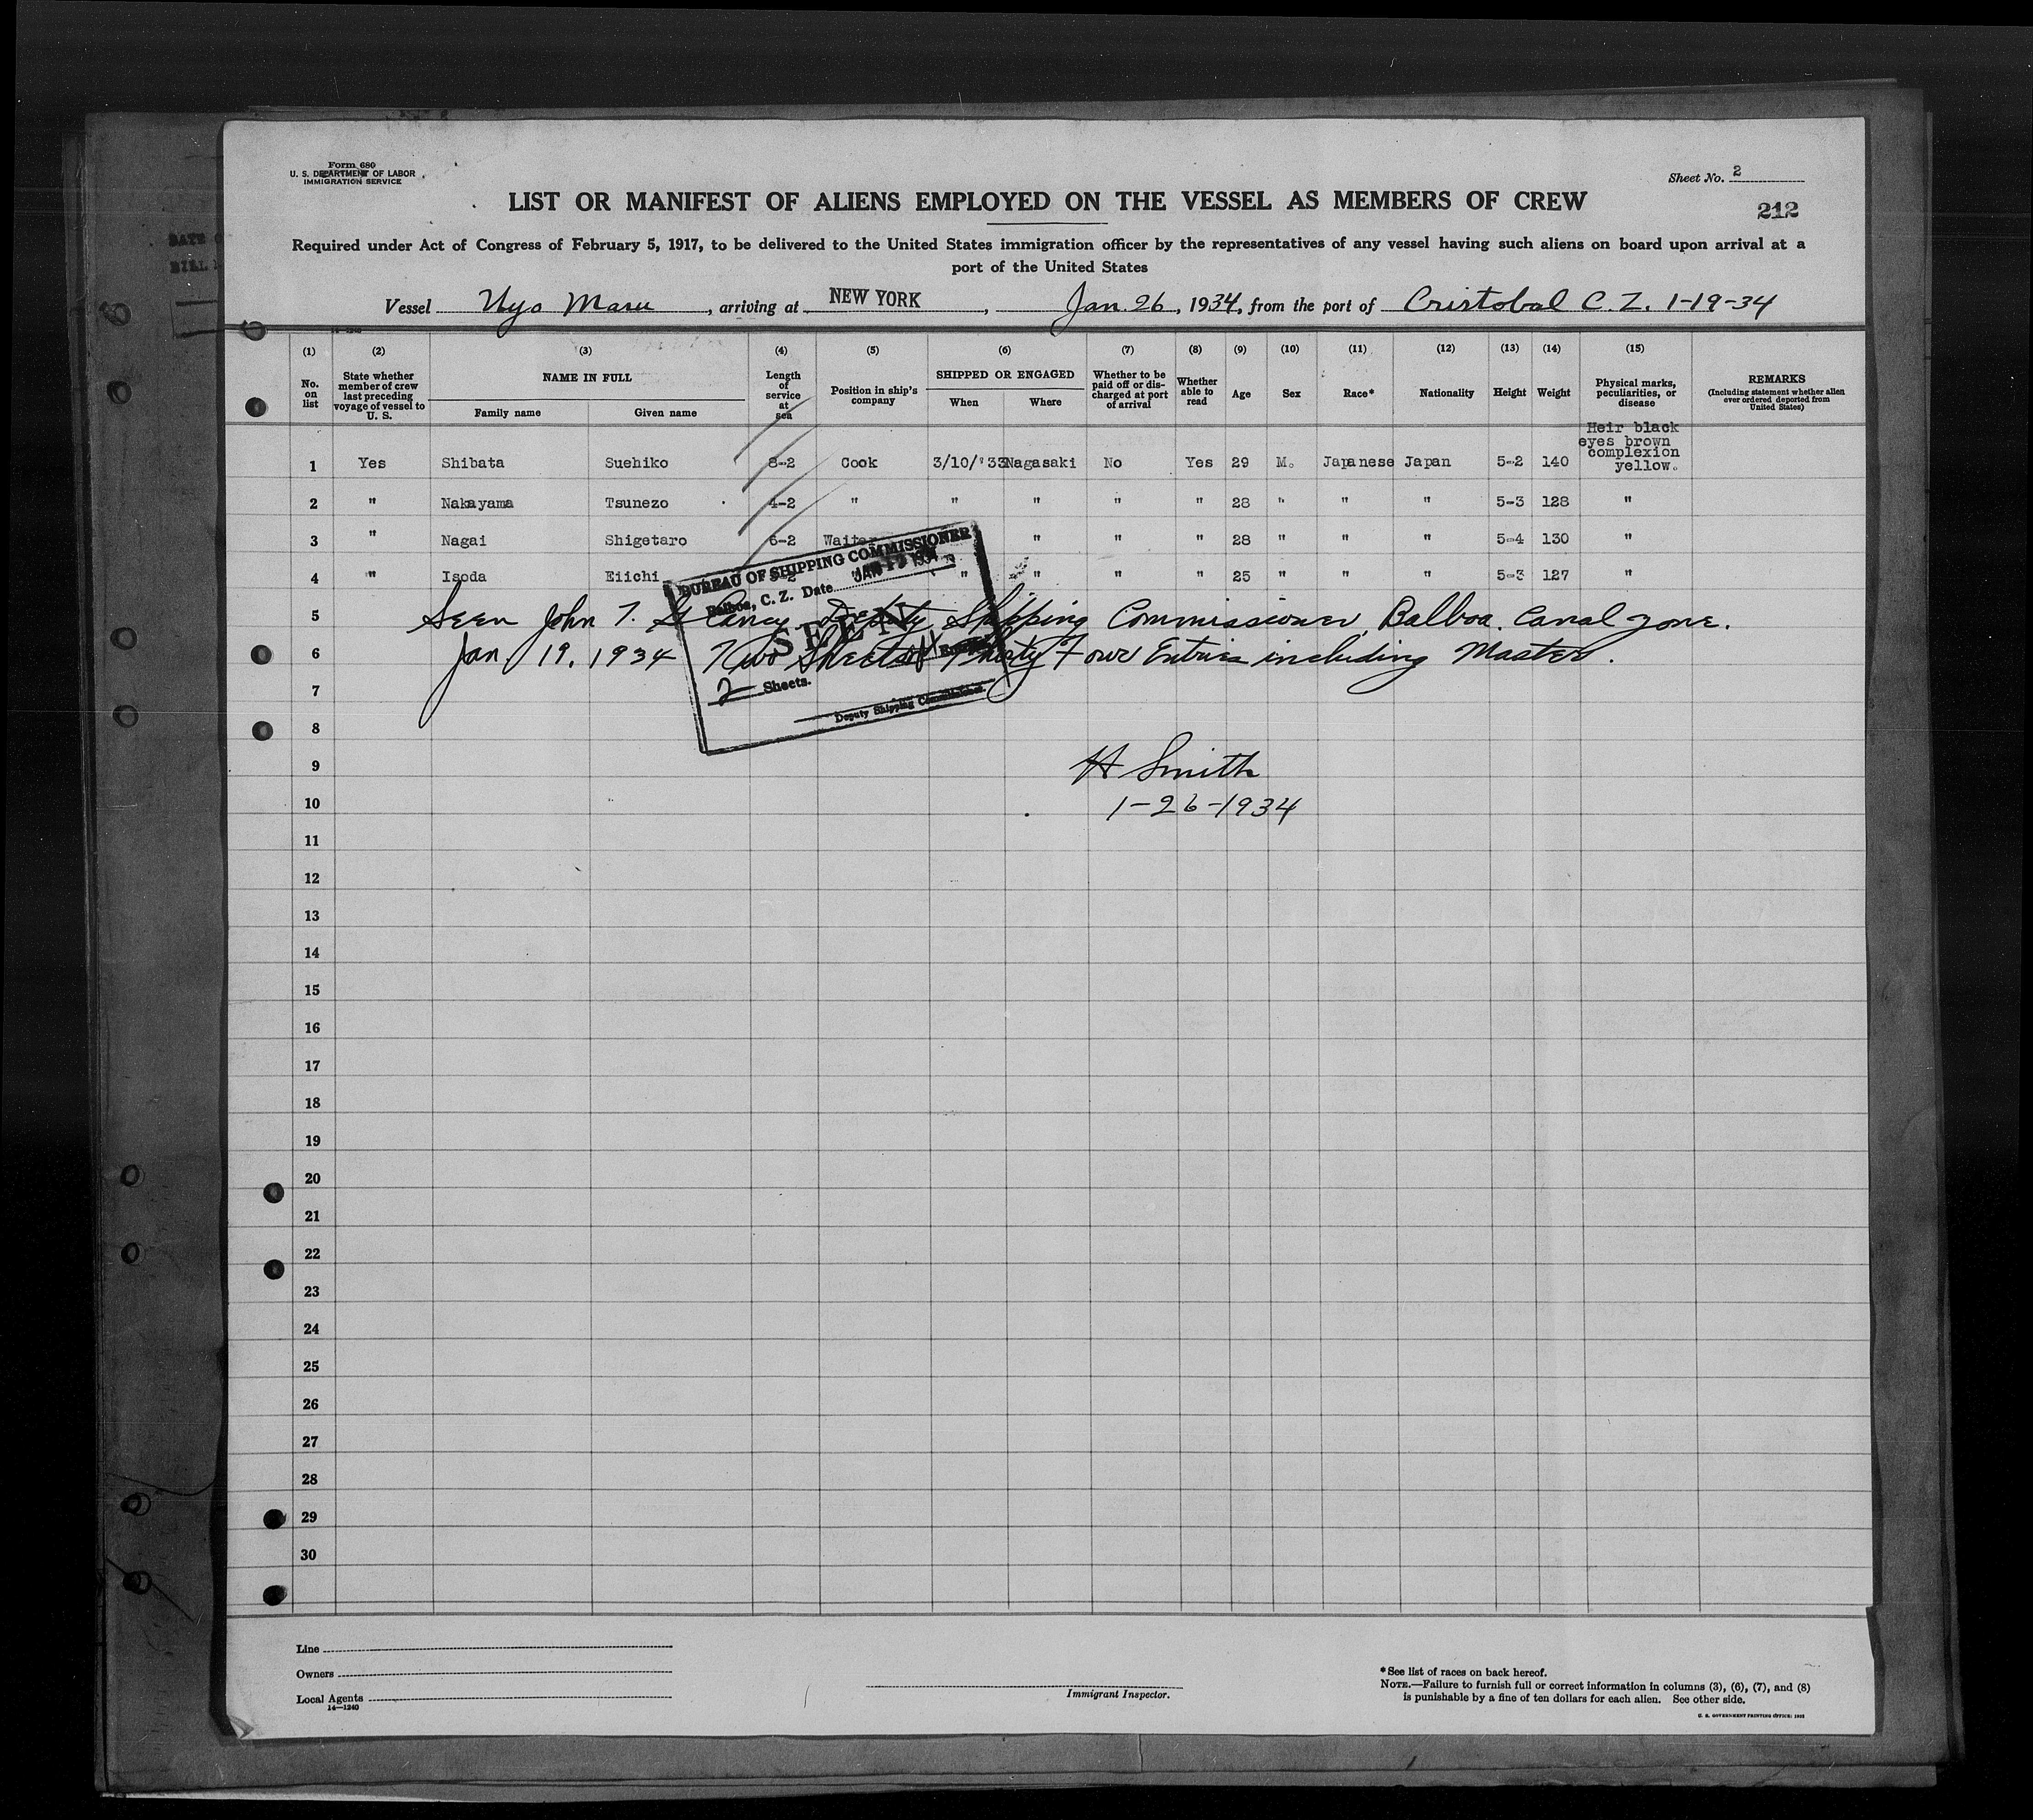 Form 680
U. S. DEPARTMENT OF LABOR
IMMIGRATION SERVICE
Sheet No. 2
LIST OR MANIFEST OF ALIENS EMPLOYED ON THE VESSEL AS MEMBERS OF CREW
212
Required under Act of Congress of February 5, 1917, to be delivered to the United States immigration officer by the representatives of any vessel having such aliens on board upon arrival at a
port of the United States
Vessel Uyo Maru, arriving at NEW YORK, Jan. 26, 1934, from the port of Cristobal C. Z. 1-19-34
(1) (2) (3) (4) (5) (6) (7) (8) (9) (10) (11) (12) (13) (14) (15)
No. on list
State whether member of crew last preceding voyage of vessel to U. S.
NAME IN FULL
Family name
Given name
Length of service at sea
Position in ship's company
SHIPPED OR ENGAGED
When
Where
Whether to be paid off or discharged at port of arrival
Whether able to read
Age
Sex
Race*
Nationality
Height
Weight
Physical marks, peculiarities, or disease
REMARKS
(Including statement whether alien ever ordered deported from United States)
Heir black
eyes brown
complexion
yellow.
1 Yes Shibata Suehiko 8-2 Cook 3/10/'33 Nagasaki No Yes 29 M. Japanese Japan 5-2 140
2 " Nakayama Tsunezo 4-2 " " " " " 28 " " " 5-3 128 "
3 " Nagai Shigetaro 6-2 Waiter " " " 28 " " " 5-4 130 "
4 " Isoda Eiichi " " " " 25 " " " 5-3 127 "
BUREAU OF SHIPPING COMMISSIONER
Balboa, C. Z. Date JAN 19 1934
SEEN
2 Sheets.
Deputy Shipping Commissioner
5 Seen John T. Deputy Shipping Commissioner, Balboa. Canal Zone.
6 Jan 19, 1934 Two Sheets Thirty Four Entries including Master.
7
8
9 H Smith
10 1-26-1934
11
12
13
14
15
16
17
18
19
20
21
22
23
24
25
26
27
28
29
30
Line
Owners
Local Agents
14—1240
Immigrant Inspector.
*See list of races on back hereof.
NOTE.—Failure to furnish full or correct information in columns (3), (6), (7), and (8)
is punishable by a fine of ten dollars for each alien. See other side.